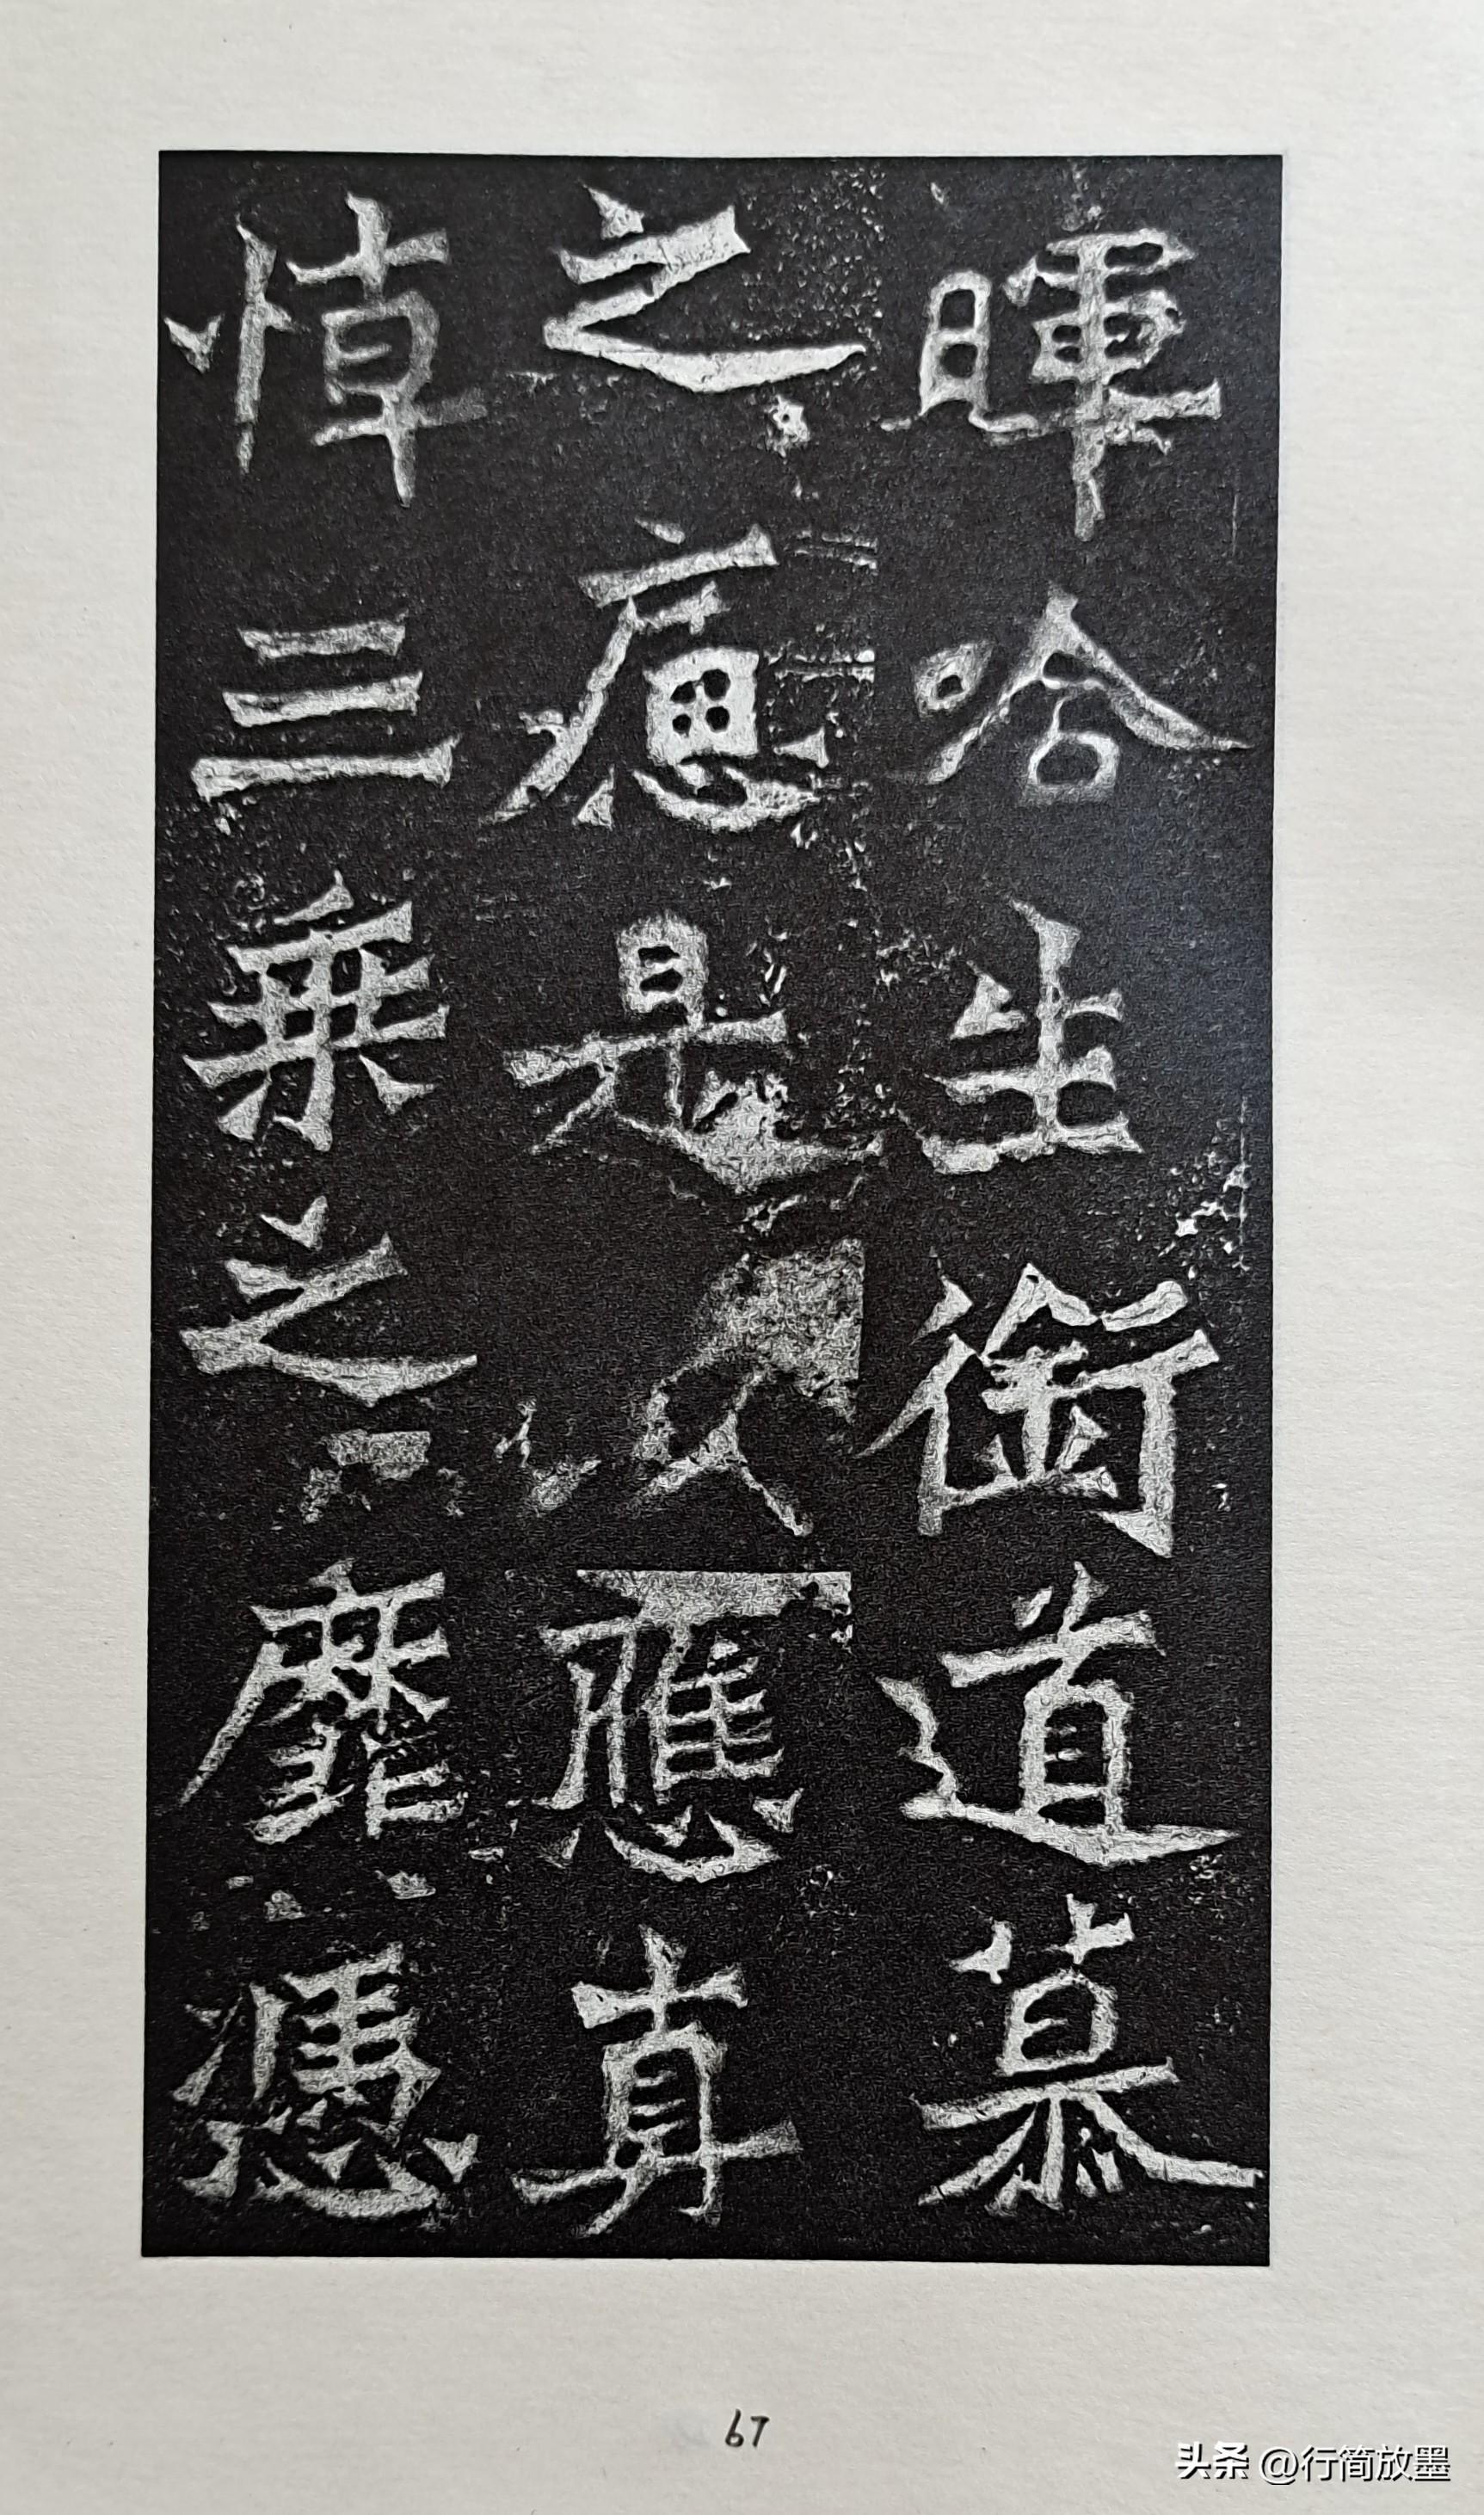 暉唅生銜道慕
之𤸰是以應真
悼三乘之靡憑
67
头条 @行简放墨